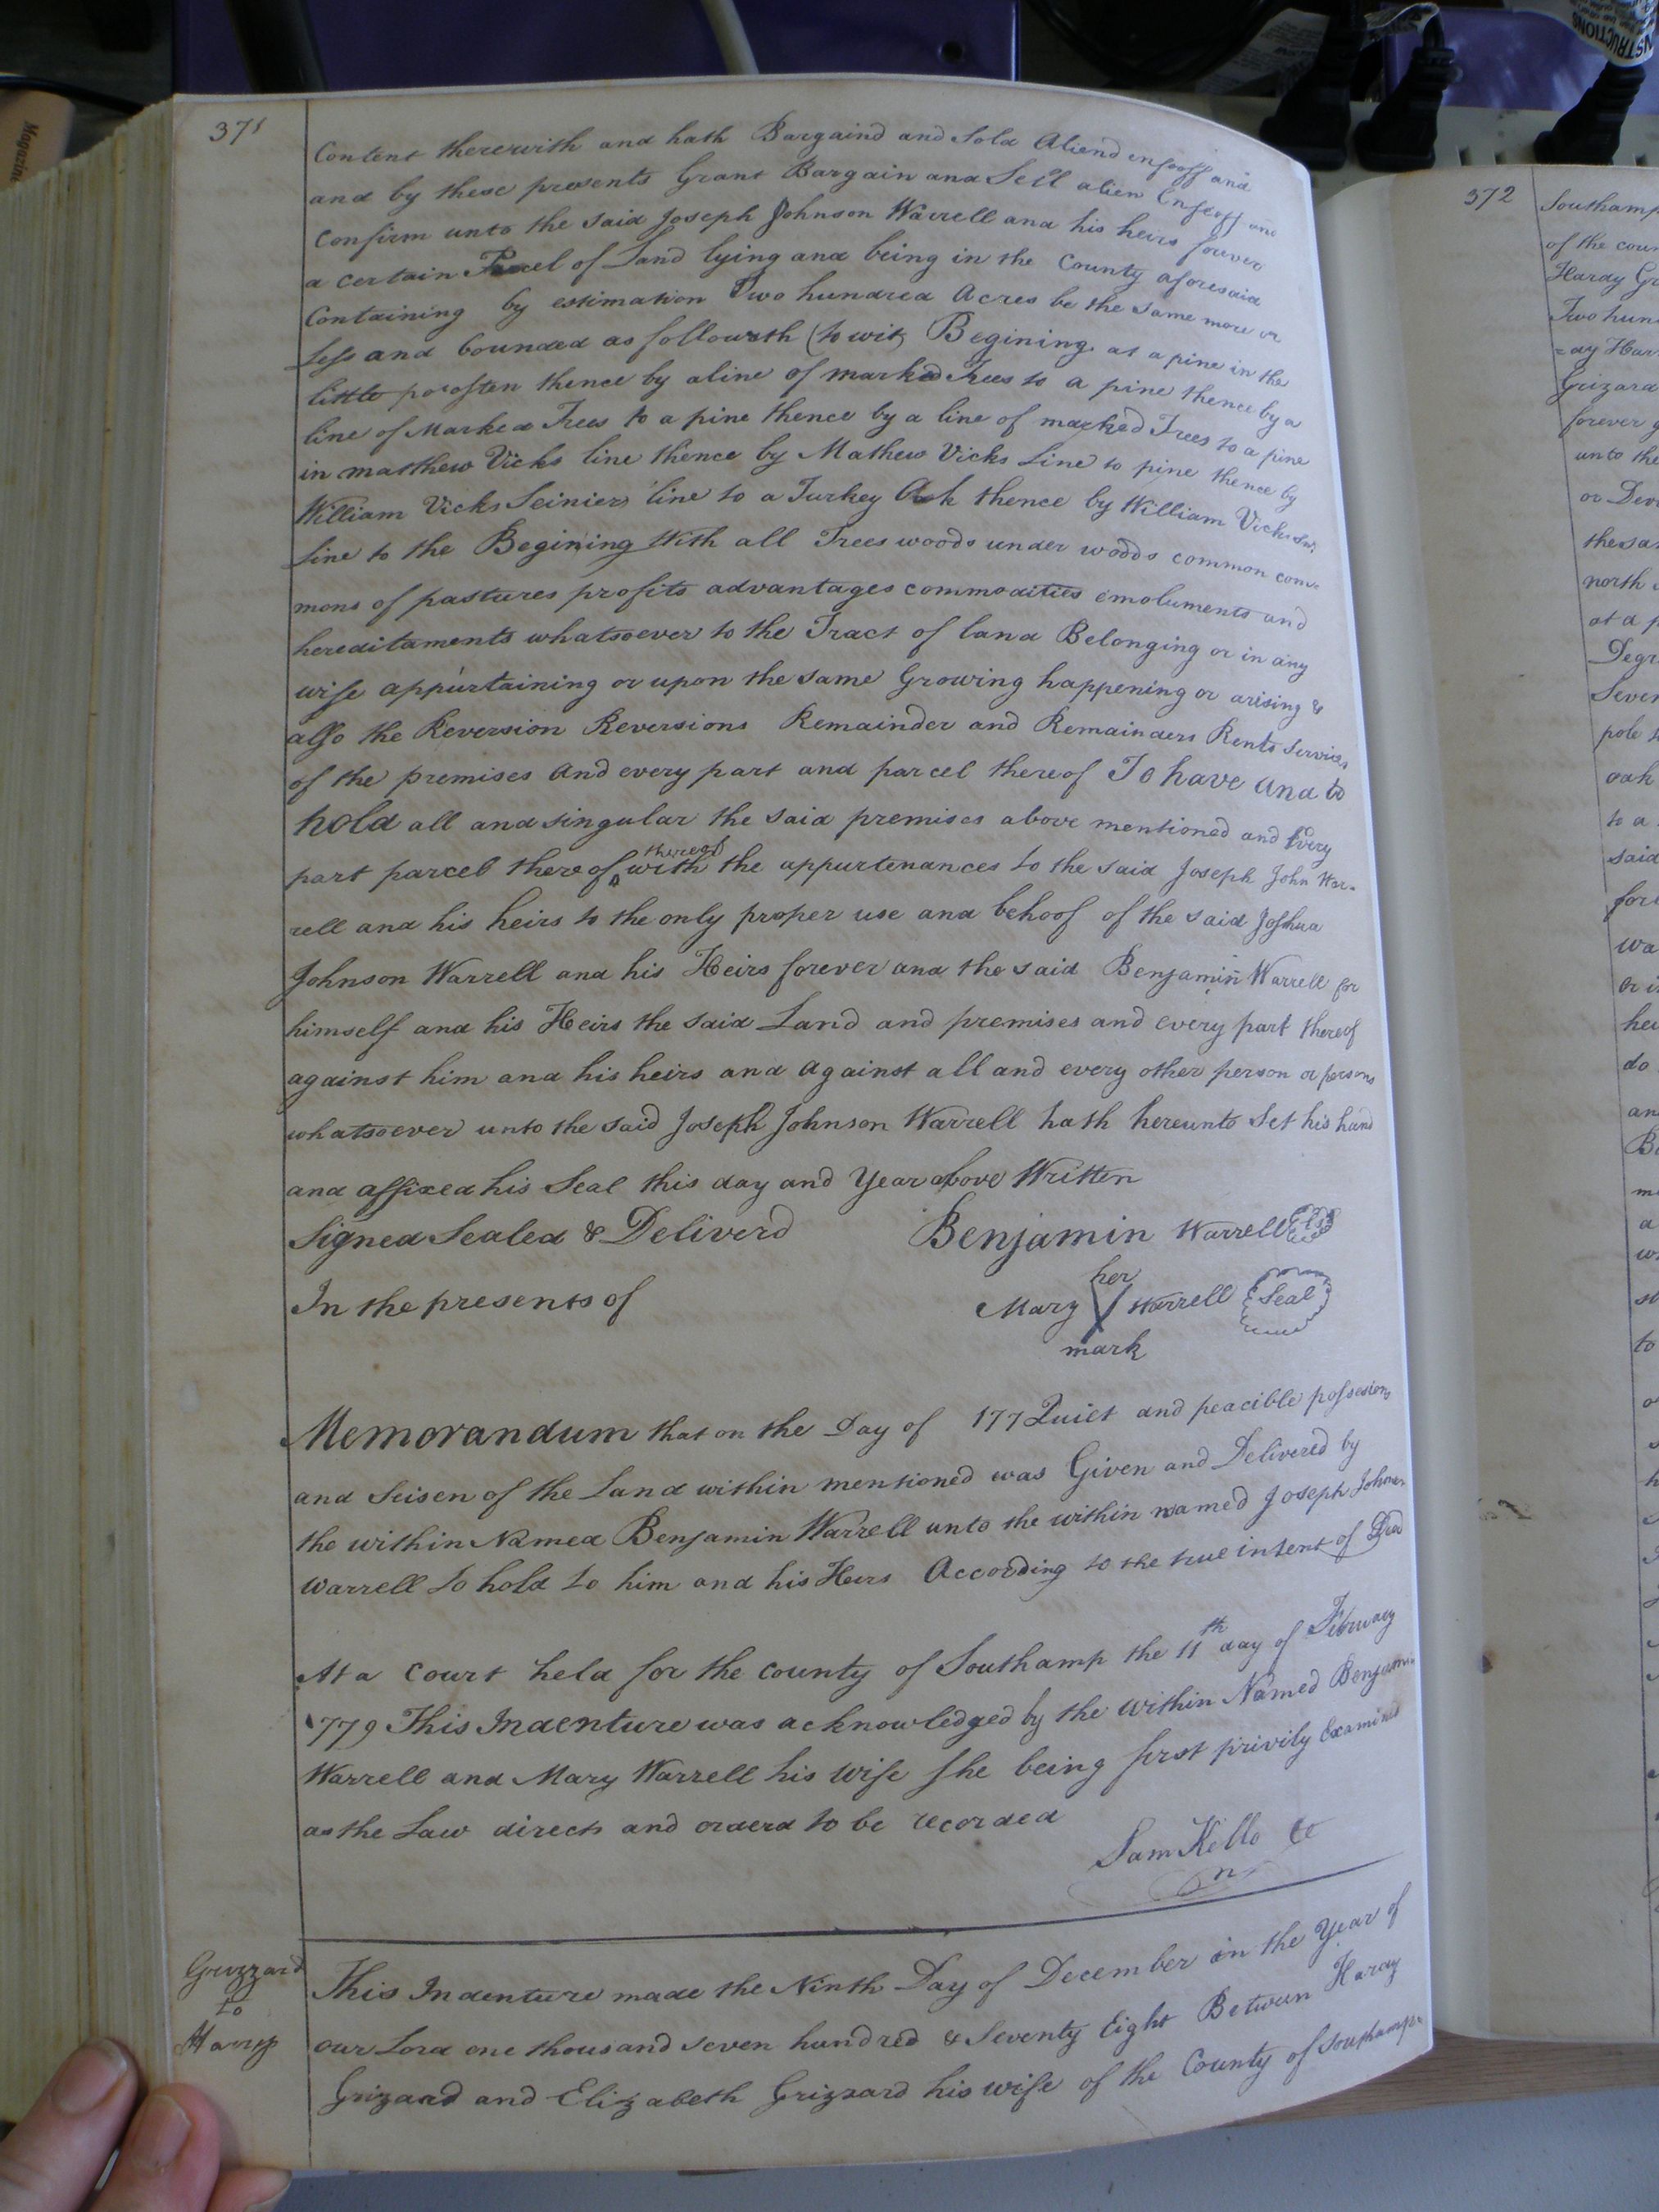 371
Content therewith and hath Bargaind and Sold Aliend enfeoff and
and by these presents Grant Bargain and Sell alien Enfeoff and
Confirm unto the said Joseph Johnson Warrell and his heirs forever
a certain Parcel of Land lying and being in the County aforesaid
Containing by estimation Two hundred Acres be the same more or
Less and bounded as followeth (to wit) Begining at a pine in the
little pocosten thence by a line of marked Trees to a pine thence by a
line of Marked Trees to a pine thence by a line of marked Trees to a pine
in matthew Vicks line thence by Mathew Vicks Line to pine thence by
William Vicks Seiniers line to a Turkey Oak thence by William Vicks Snr
Line to the Begining With all Trees woods under woods common com=
mons of pastures profits advantages commodities emoluments and
hereditaments whatsoever to the Tract of land Belonging or in any
wise appurtaining or upon the same Growing happening or arising &
also the Reversion Reversions Remainder and Remainders Rents Services
of the premises And every part and parcel thereof To have and to
hold all and singular the said premises above mentioned and Every
part parcel thereof thereof with the appurtenances to the said Joseph John War=
rell and his heirs to the only proper use and behoof of the said Joshua
Johnson Warrell and his Heirs forever and the said Benjamin Warrell for
himself and his Heirs the said Land and premises and every part thereof
against him and his heirs and against all and every other person or persons
whatsoever unto the said Joseph Johnson Warrell hath hereunto Set his hand
and affixed his Seal this day and Year above Written
Signed Sealed & Deliverd Benjamin Warrell
In the presents of her
Mary Warrell Seal
mark
Memorandum that on the Day of 177 Quiet and peacible possesions
and Seisen of the Land within mentioned was Given and Delivered by
the within Named Benjamin Warrell unto the within named Joseph Johnson
Warrell to hold to him and his Heirs According to the true intent of Deed
At a Court held for the County of Southamp the 11th day of February
1779 This Indenture was acknowledged by the within Named Benjamin
Warrell and Mary Warrell his Wife She being first privily Examined
as the Law directs and orderd to be recorded
Sam Kello
This Indenture made the Ninth Day of December in the Year of
our Lord one thousand seven hundred & Seventy Eight Between Hardy
Grizard and Elizabeth Grizzard his wife of the County of Southamp=
Grizzard
to
Harris
372
Southamp
of the coun
Hardy Gr
Two hun
=dy Har
Grizard
forever g
unto the
or Dev
the sa
north
at a p
Degr
Seven
pole t
oak
to a
said
for
wa
or i
hei
do
an
to
INSTRUCTIONS
Magazine